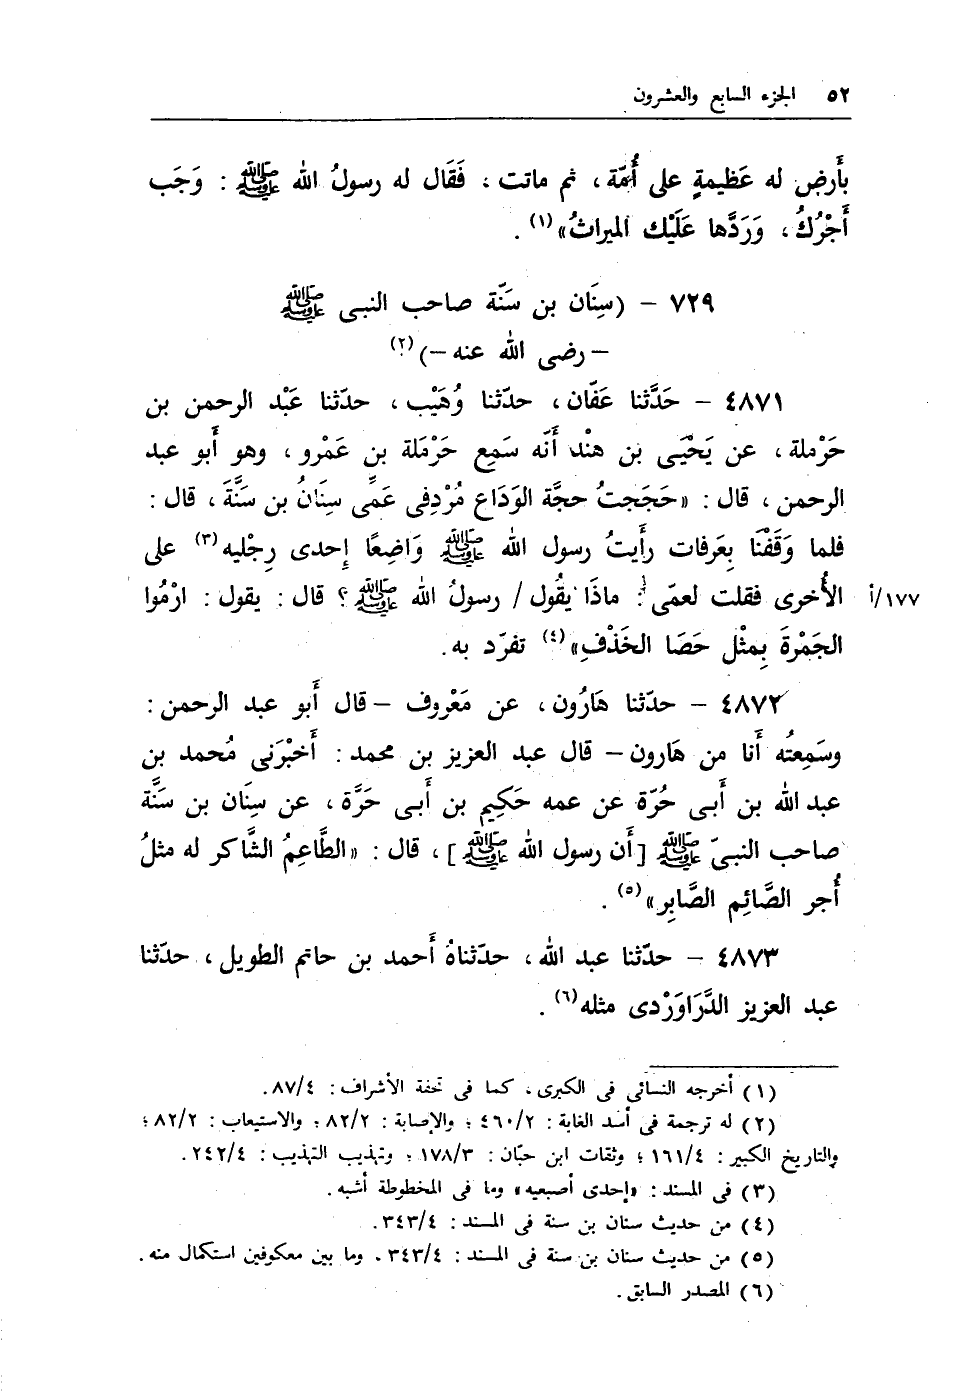 ٥٢ الجزء السابع والعشرون
بأَرضٍ له عَظيمةٍ على أُمّة ، ثم ماتت ، فَقَال له رسولُ الله ﷺ : وَجَب
أَجْرُكُ ، وَرَدَّها عَلَيْك الميراثُ» (١) .
٧٢٩ – (سِنَان بن سَنّة صاحب النبى ﷺ
– رضى الله عنه –) (٢)
٤٨٧١ – حَدَّثنا عَفّان ، حدّثنا وُهَيْب ، حدّثنا عَبْد الرحمن بن
حَرْملة ، عن يَحْيَى بن هنْد أَنّه سَمِع حَرْملة بن عَمْرو ، وهو أَبو عبد
الرحمن ، قال : «حَجَجتُ حجَّة الوَدَاع مُرْدِفى عَمِّى سِنَانُ بن سَنَّةَ ، قال :
فلما وَقَفْنَا بِعَرفات رأَيتُ رسول الله ﷺ وَاضِعًا إحدى رِجْليه (٣) على
الأُخرى فقلت لعمّى : ماذَا يقُول / رسولُ الله ﷺ ؟ قال : يقول : ارْمُوا ١٧٧/أ
الجَمْرةَ بِمثْل حَصَا الخَذْفِ» (٤) تفرّد به .
٤٨٧٢ – حدّثنا هَارُون ، عن مَعْروف – قال أَبو عبد الرحمن :
وسَمِعتُه أَنا من هَارون – قال عبد العزيز بن محمد : أَخبْرَنى مُحمد بن
عبد الله بن أَبى حُرّة عن عمه حَكِيم بن أَبى حَرَّة ، عن سِنَان بن سَنَّة
صاحب النبىّ ﷺ [أَن رسول الله ﷺ] ، قال : «الطَّاعِمُ الشَّاكر له مثلُ
أَجر الصَّائِم الصَّابِر» (٥) .
٤٨٧٣ – حدّثنا عبد الله ، حدّثناهُ أَحمد بن حاتم الطويل ، حدّثنا
عبد العزيز الدَّرَاوَرْدى مثله (٦) .
(١) أخرجه النسائى فى الكبرى ، كما فى تحفة الأشراف : ٨٧/٤ .
(٢) له ترجمة فى أسد الغابة : ٤٦٠/٢ ؛ والإصابة : ٨٢/٢ ؛ والاستيعاب : ٨٢/٢ ؛
والتاريخ الكبير : ١٦١/٤ ؛ وثقات ابن حبّان : ١٧٨/٣ ؛ وتهذيب التهذيب : ٢٤٢/٤ .
(٣) فى المسند : «إحدى أصبعيه» وما فى المخطوطة أشبه .
(٤) من حديث سنان بن سنة فى المسند : ٣٤٣/٤ .
(٥) من حديث سنان بن سنة فى المسند : ٣٤٣/٤ . وما بين معكوفين استكمال منه .
(٦) المصدر السابق .